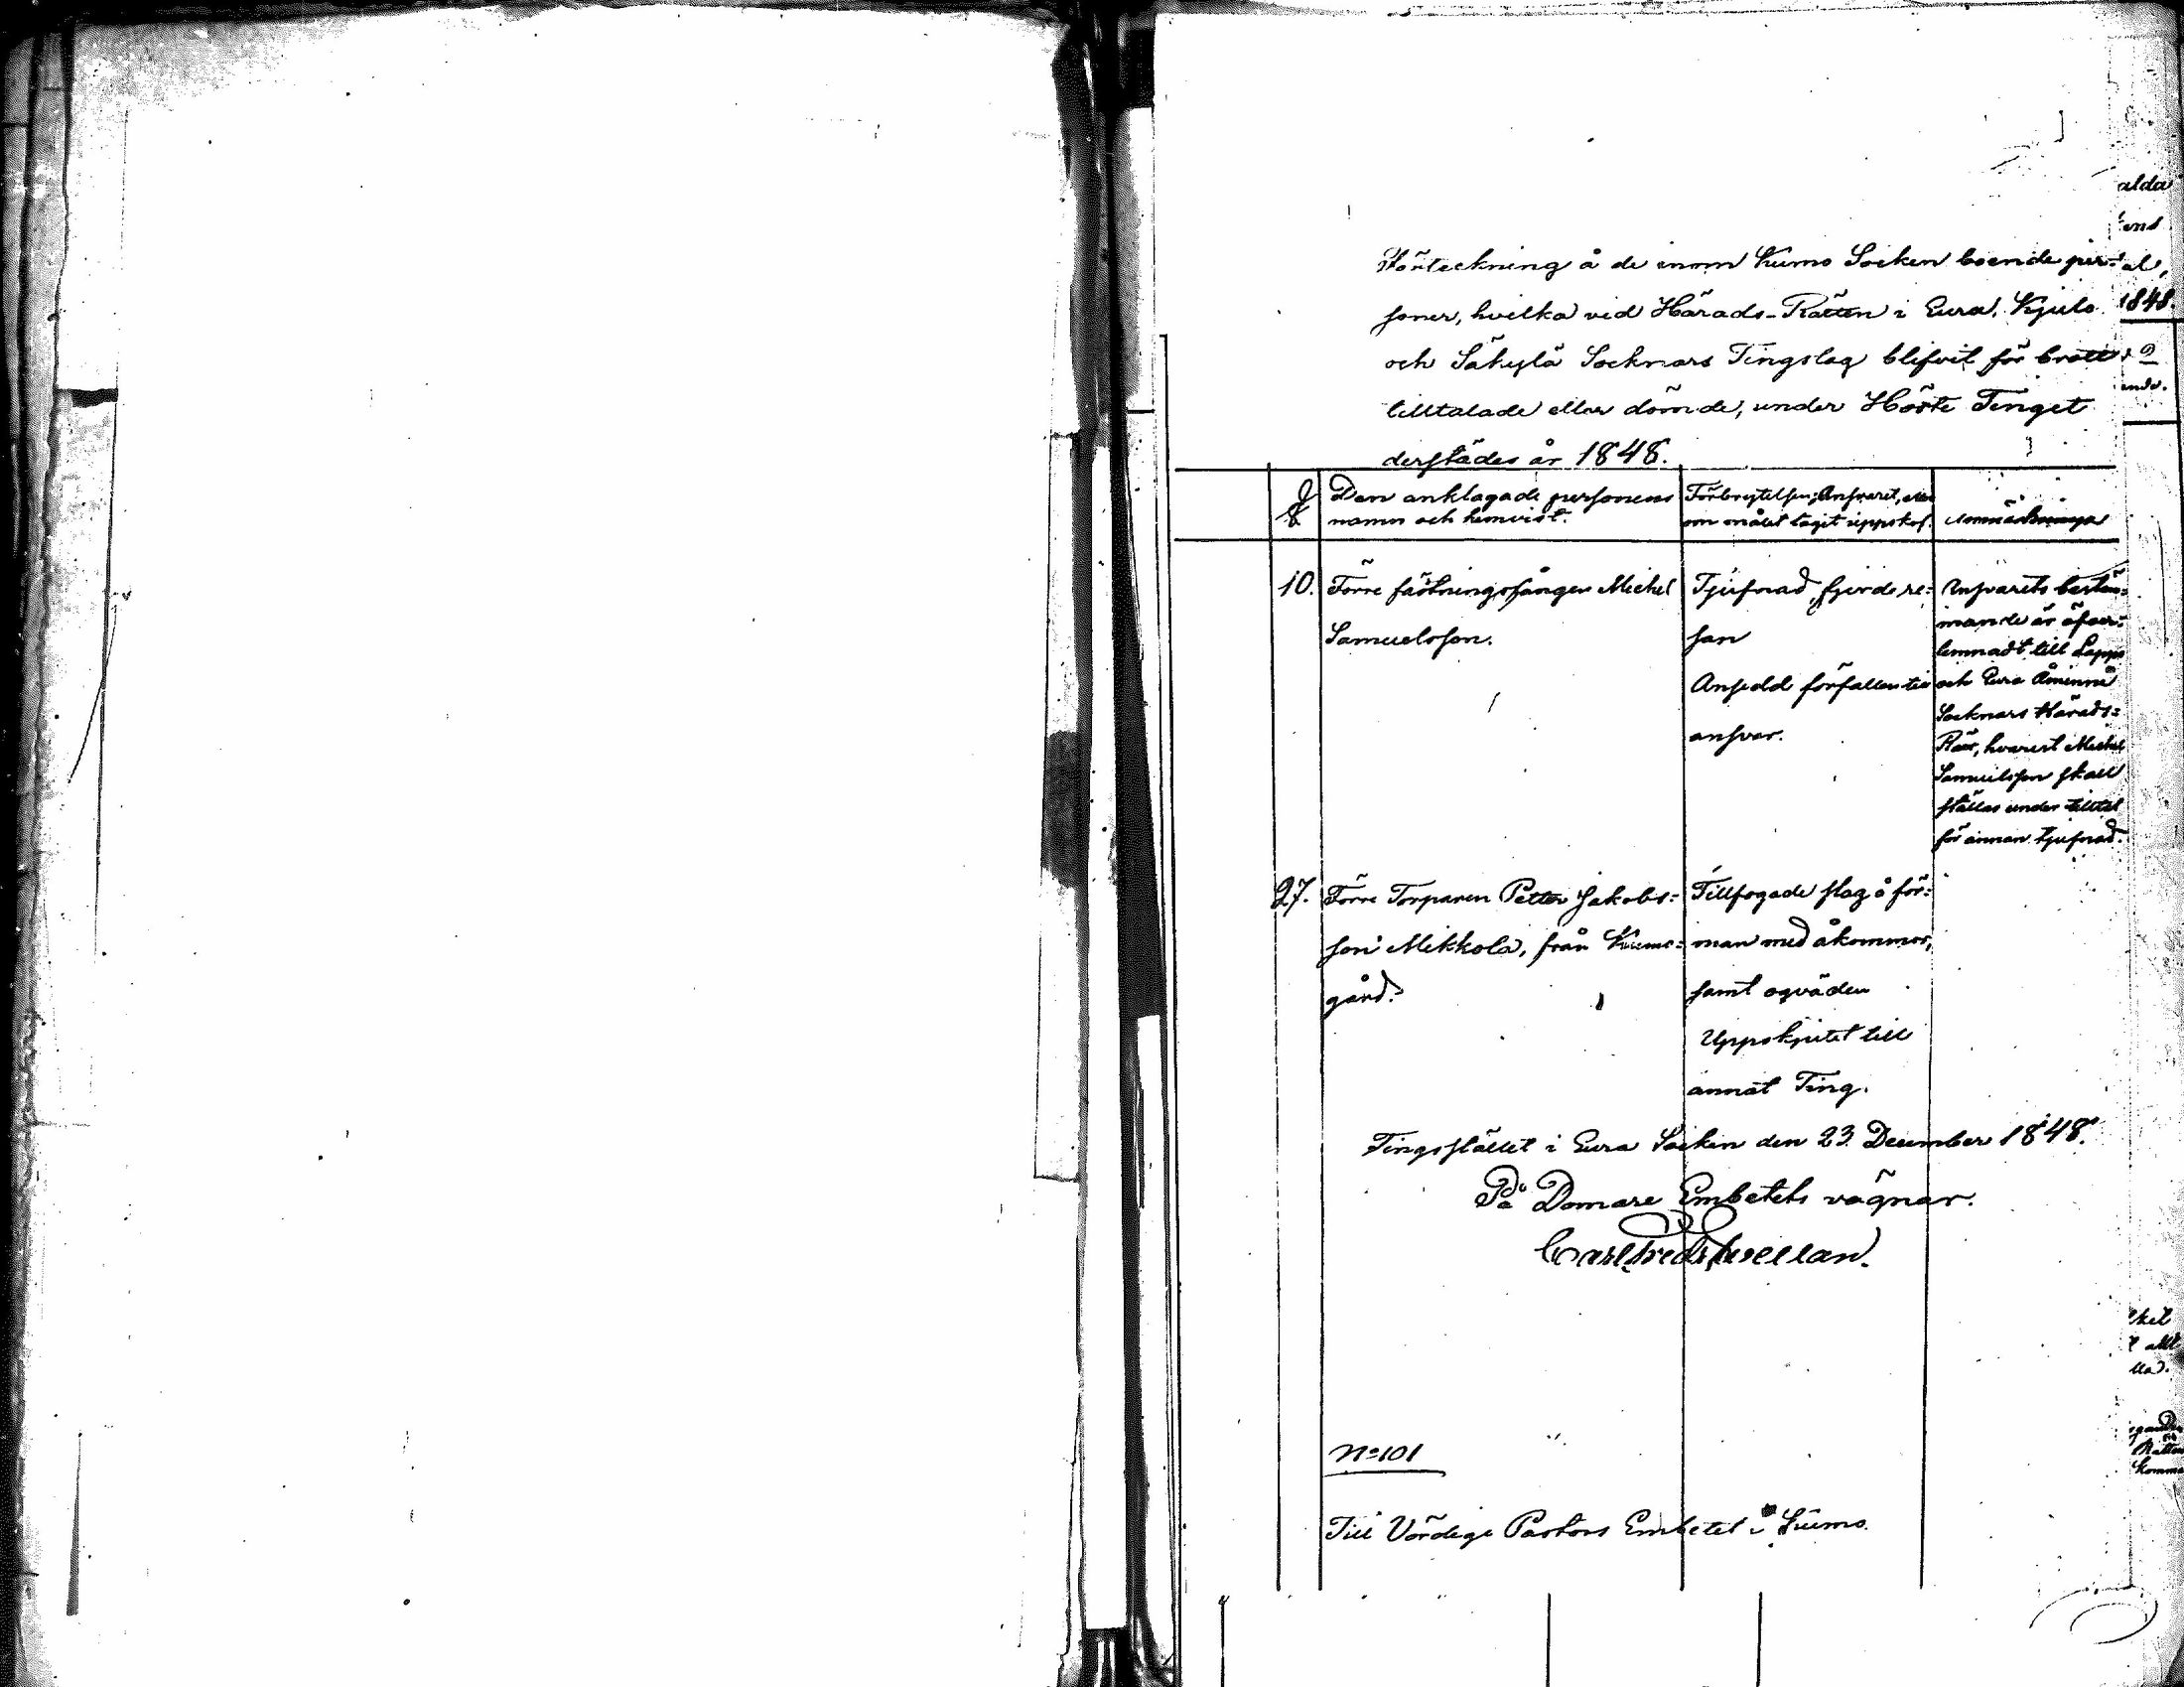 Förteckning å de inom Kumo Socken boende per=
soner, hvilka vid Härads-Rätten i Eura, Kjulo
och Säkylä Socknars Tingslag blifvit för brott
tilltalade eller dömde, under Höste Tinget
derstädes år 1848.
§
Den anklagade personens
namn och hemvist.
Förbrytelsen, Ansvaret, eller
om målet tagit uppskof.
Anmärkningar
10.
Förre fästningsfången Michel
Samuelsson.
Tjufnad, fjerde re=
san
Ansedd förfallen till
ansvar.
Ansvarets bestäm=
mande är öfver=
lemnadt till Lappo
och Eura Åminne
Socknars Härads=
Rätt, hvarest Michel
Samuelsson skall
ställas under tilltal
för annan tjufnad.
27.
Förre Torparen Petter Jakobs=
son Mikkola, från Kumo=
gård.
Tillfogade slag å för=
man med åkommor,
samt oqväden
Uppskjutet till
annat Ting.
Tingsstället i Eura Socken den 23 December 1848.
På Domare Embetets vägnar.
No 101
Till Vördige Pastors Embetet i Kumo.
alda
1848.